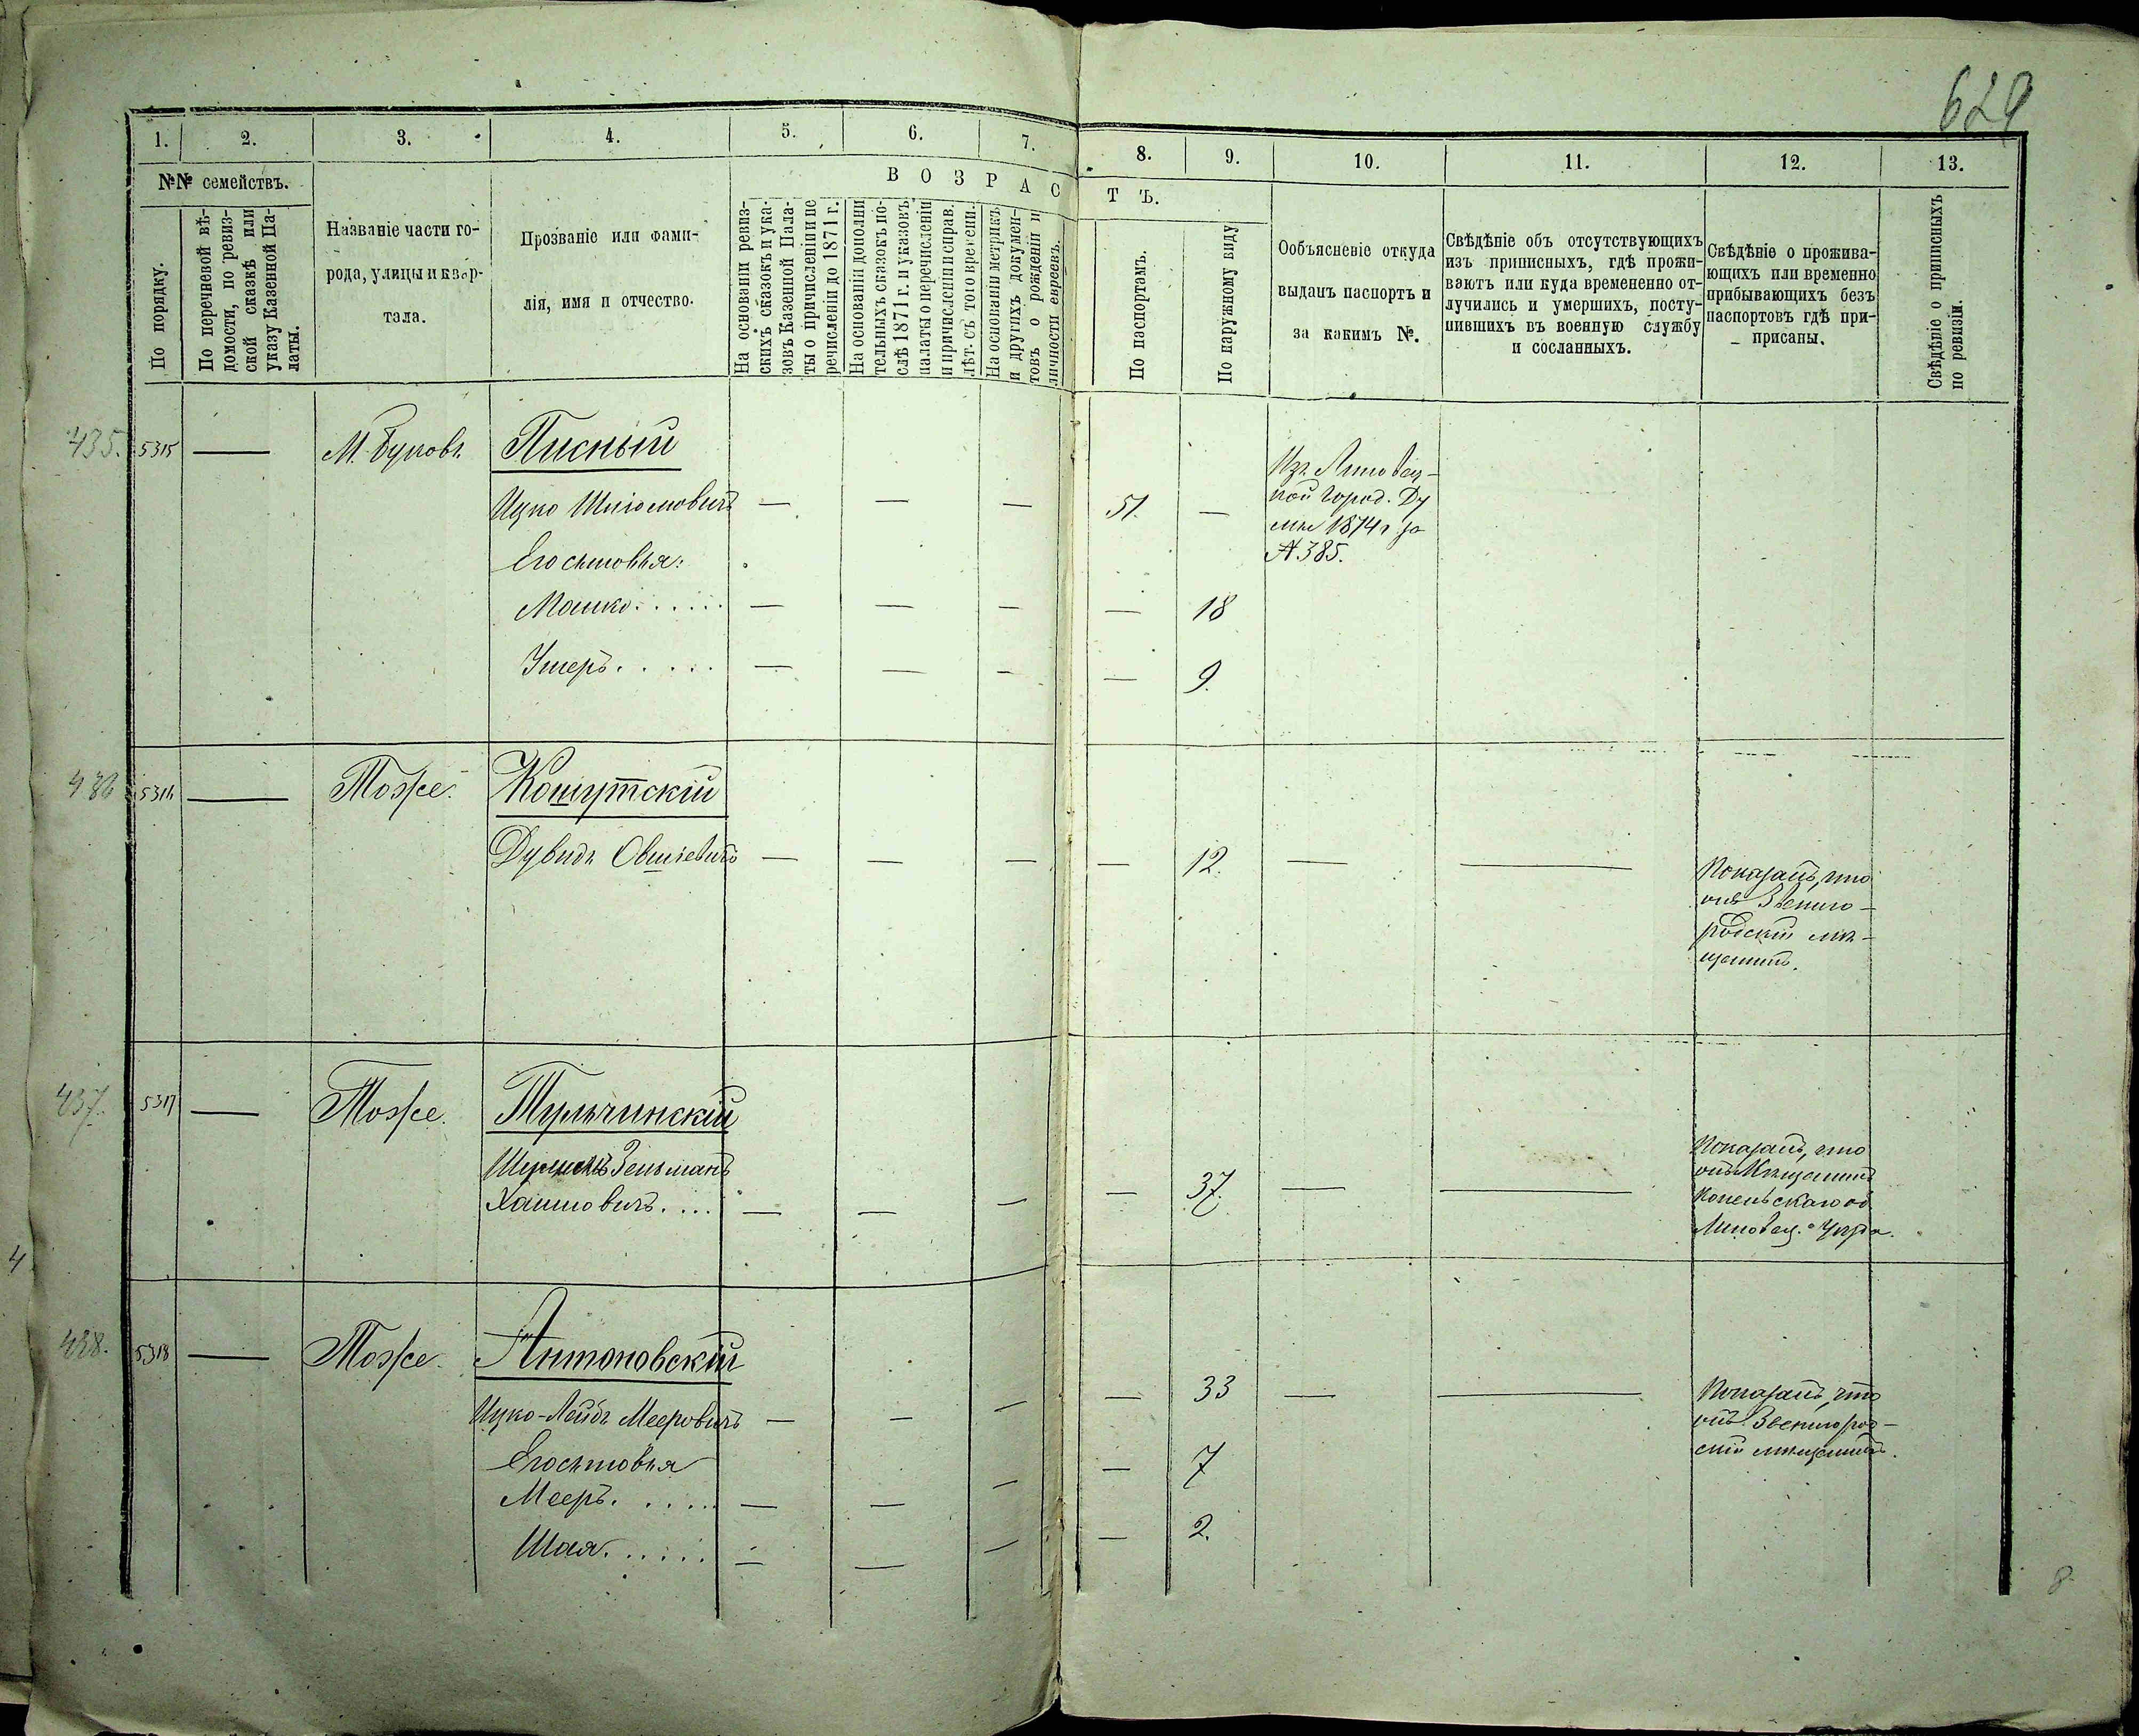 629
1. 2. 3. 4. 5. 6. 7. 8. 9. 10. 11. 12. 13.
№№ семействъ.
По порядку.
По перечневой вѣ-
домости, по ревиз-
ской сказкѣ или
указу Казенной Па-
латы.
Названіе части го-
рода, улицы и квар-
тала.
Прозваніе или фами-
лія, имя и отчество.
ВОЗРАСТЪ.
На основаніи ревиз-
скихъ сказокъ и ука-
зовъ Казенной Пала-
ты о причисленіи и пе
речисленіи до 1871 г.
На основаніи дополни
тельныхъ сказокъ по-
слѣ 1871 г. и указовъ
палаты о перечисленіи
и причисленіи и справ.
лѣт. съ того времени.
На основаніи метрикъ
и другихъ докумен-
товъ о рожденіи и
личности евреевъ.
По паспортамъ.
По наружному виду
Ообъясненіе откуда
выданъ паспортъ и
за какимъ №.
Свѣдѣніе объ отсутствующихъ
изъ приписныхъ, гдѣ прожи-
ваютъ или куда временно от-
лучились и умершихъ, посту-
пившихъ въ военную службу
и сосланныхъ.
Свѣдѣніе о прожива-
ющихъ или временно
прибывающихъ безъ
паспортовъ гдѣ при-
присаны.
Свѣдѣніе о приписныхъ
по ревизіи.
435. 5315 — М. Буковъ Писный
Ицко Шліомовичъ — — — 51. —
Изъ Липовец-
кой Город. Ду
мы 1874 г за
№ 385.
Его сыновья:
Манко...... — — — — 18
Ушеръ..... — — — — 9.
436 5316 — Тоже. Кошутскій
Дувидъ Овшіевичъ — — — — 12. — —
Показалъ, что
онъ Звениго-
родскій мѣ-
щанинъ.
437. 5317 — Тоже. Тульчинскій
Шулимъ Зельманъ
Хаимовичъ.... — — — — 37. — —
Показалъ, что
онъ Мѣщанинъ
Конельскаго об
Липовец. Уѣзда.
438. 5318 — Тоже. Антоновскій
Ицко-Лейбъ Мееровичъ — — — — 33 — —
Показалъ, что
онъ Звенигород-
скій мѣщанинъ.
Его сыновья
Мееръ...... — — — — 7
Шая...... — — — — 2.
4
8